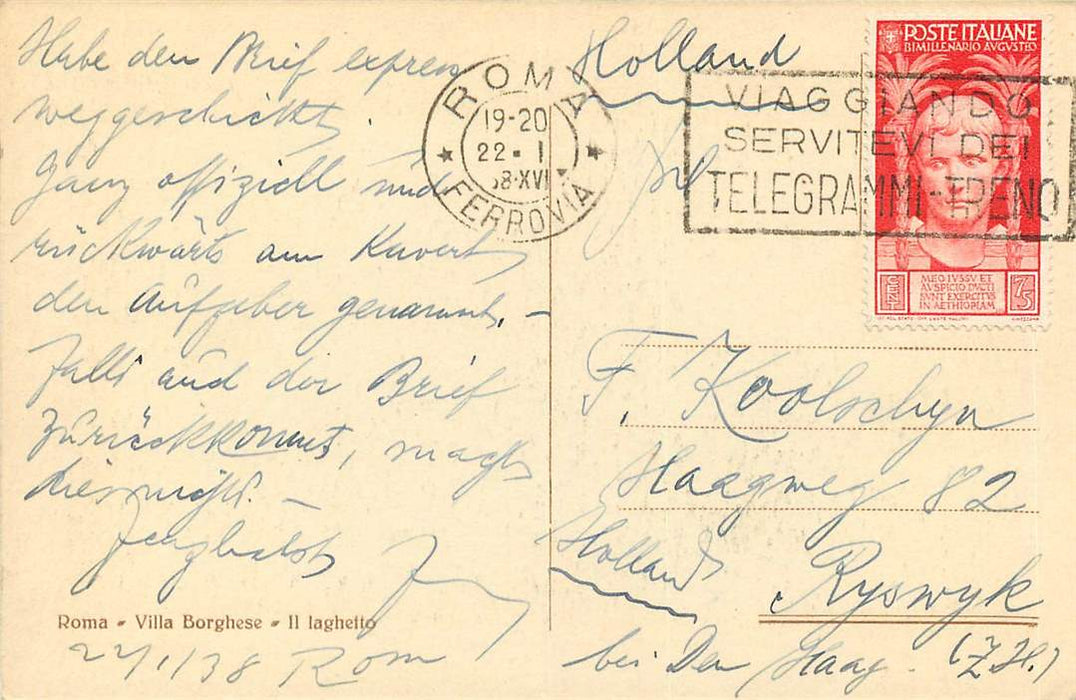 Habe den Brief express
weggeschickt.
Ganz offiziell und
rückwärts am Kuvert
den Aufgeber genannt. –
Falls auch der Brief
zurückkommt, macht
dies nichts. –
22/1/38 Rom
Roma - Villa Borghese - Il laghetto
ROMA
19-20
22 - I
38-XVI
FERROVIA
VIAGGIANDO
SERVITEVI DEI
TELEGRAMMI-TRENO
POSTE ITALIANE
BIMILLENARIO AVGVSTEO
MEO IVSSV ET
AVSPICIO DVCTI
SVNT EXERCITVS
IN AETHIOPIAM
CENT
75
Holland
F. Koolschyn
Haagweg 82
Holland
Ryswyk
bei Den Haag. (Z.H.)